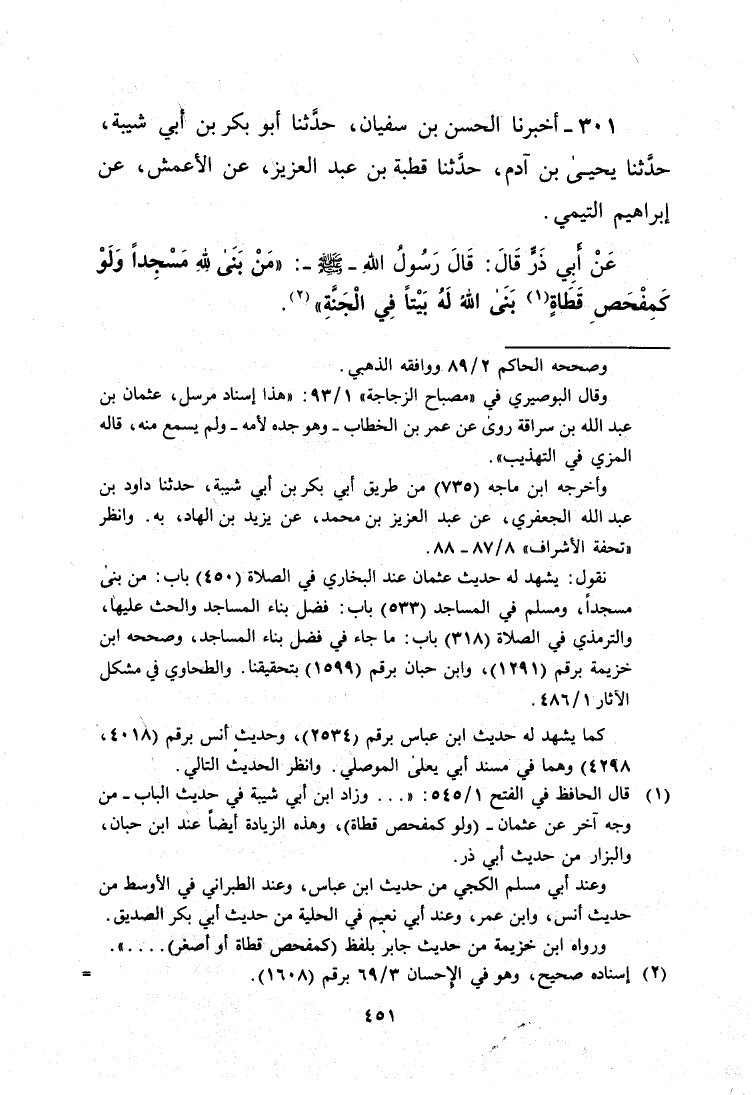 ٣٠١ - أخبرنا الحسن بن سفيان، حدَّثنا أبو بكر بن أبي شيبة،
حدَّثنا يحيىٰ بن آدم، حدَّثنا قطبة بن عبد العزيز، عن الأعمش، عن
إبراهيم التيمي.
عَنْ أَبِي ذَرٍّ قَالَ: قَالَ رَسُولُ اللهِ - ﷺ -: «مَنْ بَنَىٰ لِلّٰهِ مَسْجِداً وَلَوْ
كَمِفْحَصِ قَطَاةٍ(١) بَنَىٰ اللهُ لَهُ بَيْتاً فِي الْجَنَّةِ»(٢).
وصححه الحاكم ٨٩/٢ ووافقه الذهبي.
وقال البوصيري في «مصباح الزجاجة» ٩٣/١: «هذا إسناد مرسل، عثمان بن
عبد الله بن سراقة روىٰ عن عمر بن الخطاب - وهو جده لأمه - ولم يسمع منه، قاله
المزي في التهذيب».
وأخرجه ابن ماجه (٧٣٥) من طريق أبي بكر بن أبي شيبة، حدثنا داود بن
عبد الله الجعفري، عن عبد العزيز بن محمد، عن يزيد بن الهاد، به. وانظر
«تحفة الأشراف» ٨٧/٨ - ٨٨.
نقول: يشهد له حديث عثمان عند البخاري في الصلاة (٤٥٠) باب: من بنىٰ
مسجداً، ومسلم في المساجد (٥٣٣) باب: فضل بناء المساجد والحث عليها،
والترمذي في الصلاة (٣١٨) باب: ما جاء في فضل بناء المساجد، وصححه ابن
خزيمة برقم (١٢٩١)، وابن حبان برقم (١٥٩٩) بتحقيقنا. والطحاوي في مشكل
الآثار ٤٨٦/١.
كما يشهد له حديث ابن عباس برقم (٢٥٣٤)، وحديث أنس برقم (٤٠١٨،
٤٢٩٨) وهما في مسند أبي يعلىٰ الموصلي. وانظر الحديث التالي.
(١) قال الحافظ في الفتح ٥٤٥/١: «... وزاد ابن أبي شيبة في حديث الباب - من
وجه آخر عن عثمان - (ولو كمفحص قطاة)، وهذه الزيادة أيضاً عند ابن حبان،
والبزار من حديث أبي ذر.
وعند أبي مسلم الكجي من حديث ابن عباس، وعند الطبراني في الأوسط من
حديث أنس، وابن عمر، وعند أبي نعيم في الحلية من حديث أبي بكر الصديق.
ورواه ابن خزيمة من حديث جابر بلفظ (كمفحص قطاة أو أصغر)....».
(٢) إسناده صحيح، وهو في الإحسان ٦٩/٣ برقم (١٦٠٨). =
٤٥١